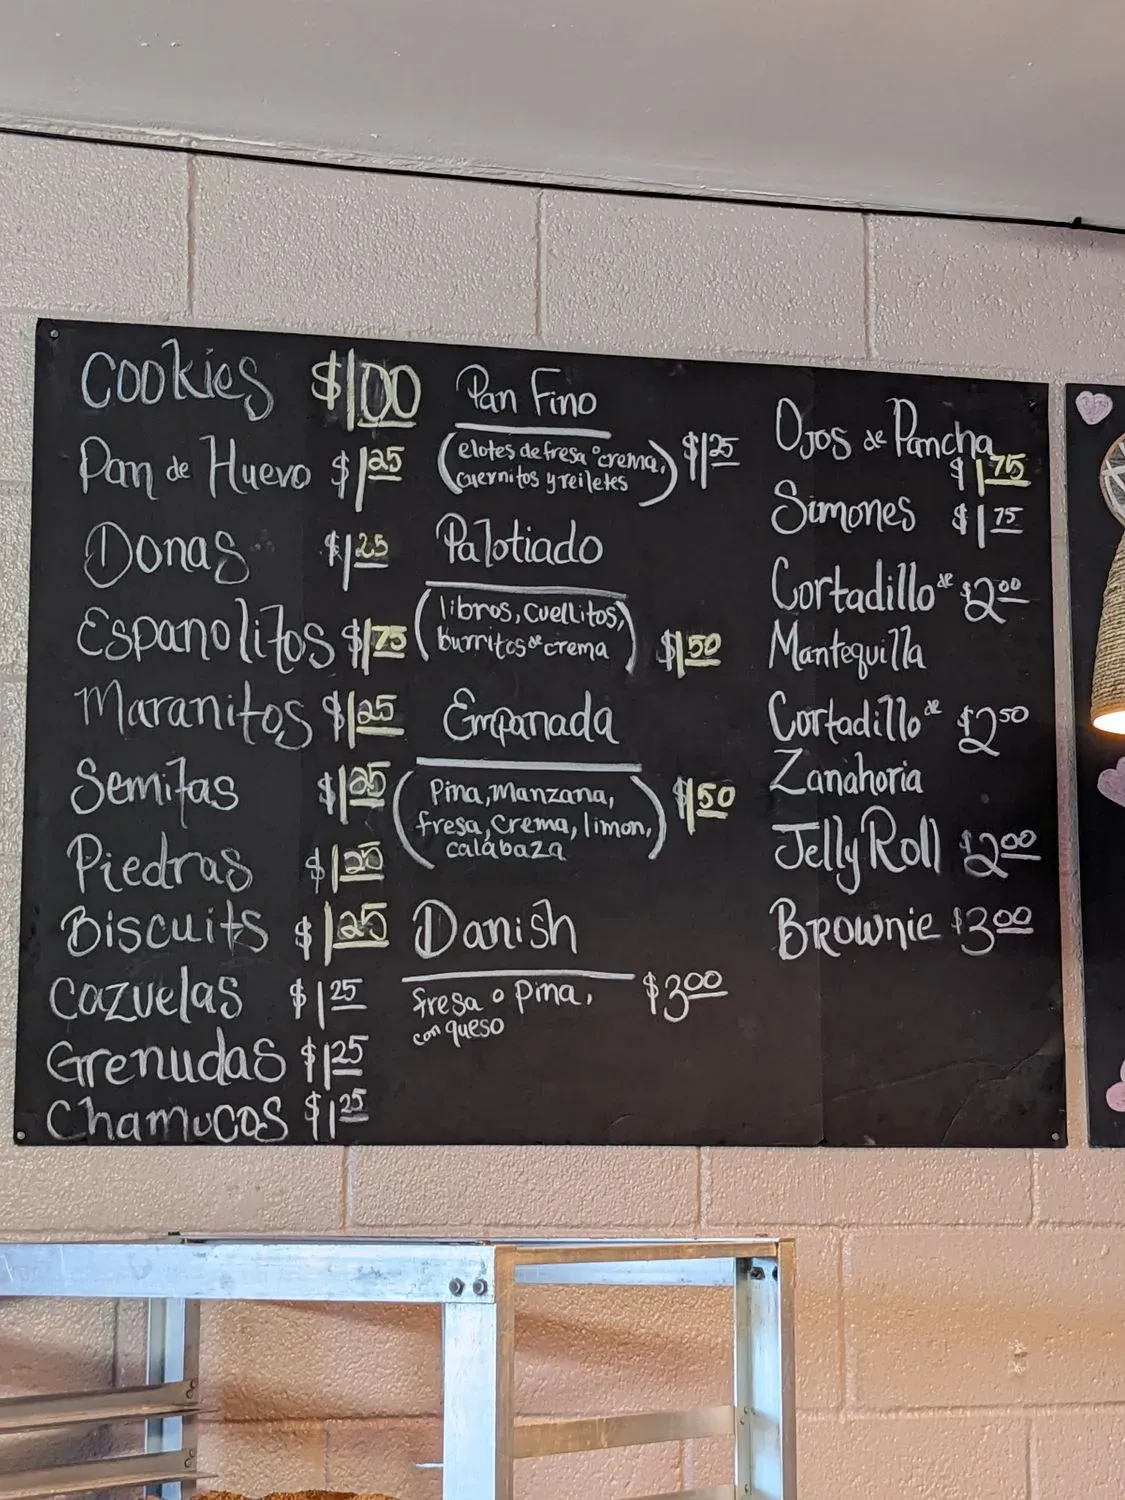 Cookies $1.00
Pan de Huevo $1.25
Donas $1.25
Espanolitos $1.75
Maranitos $1.25
Semitas $1.25
Piedras $1.25
Biscuits $1.25
Cazuelas $1.25
Grenudas $1.25
Chamucos $1.25
Pan Fino
(elotes de fresa o crema, $1.25
cuernitos y reiletes)
Palotiado
(libros, cuellitos,
burritos de crema) $1.50
Empanada
(Pina, manzana, $1.50
fresa, crema, limon,
calabaza)
Danish
fresa o pina, $3.00
con queso
Ojos de Pancha
$1.75
Simones $1.75
Cortadillo de $2.00
Mantequilla
Cortadillo de $2.50
Zanahoria
Jelly Roll $2.00
Brownie $3.00